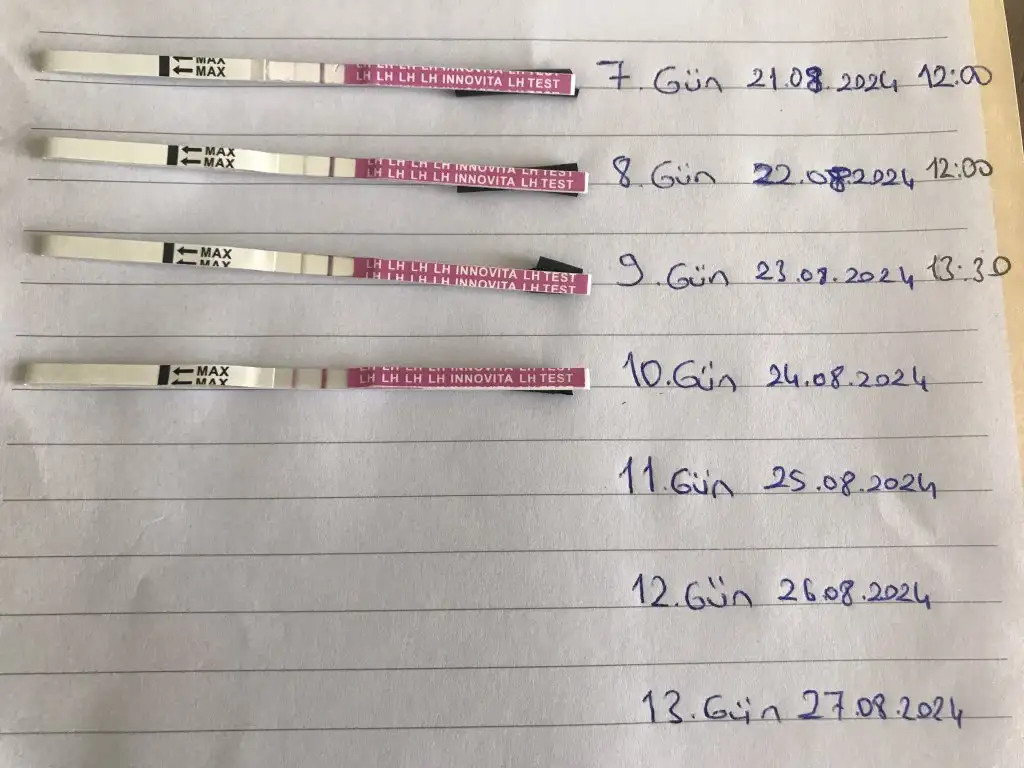 MAX
MAX
LH LH LH LH INNOVITA LH TEST
LH LH LH LH INNOVITA LH TEST
7. Gün 21.08.2024 12:00
MAX
MAX
LH LH LH LH INNOVITA LH TEST
LH LH LH LH INNOVITA LH TEST
8. Gün 22.08.2024 12:00
MAX
MAX
LH LH LH LH INNOVITA LH TEST
LH LH LH LH INNOVITA LH TEST
9. Gün 23.08.2024 13:30
MAX
MAX
LH LH LH LH INNOVITA LH TEST
10. Gün 24.08.2024
11. Gün 25.08.2024
12. Gün 26.08.2024
13. Gün 27.08.2024